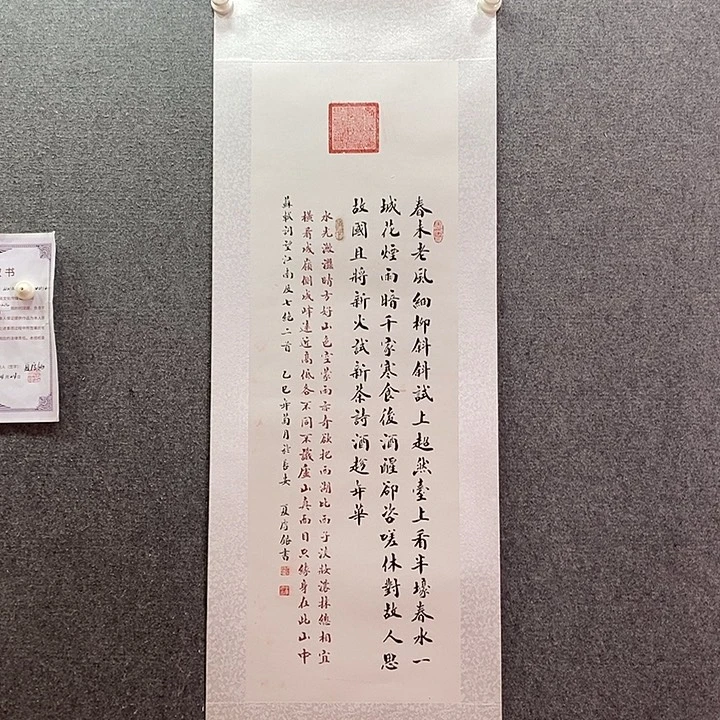 春未老風細柳斜斜試上超然臺上看半壕春水一
城花煙雨暗千家寒食後酒醒卻咨嗟休對故人思
故國且將新火試新茶詩酒趁年華
水光瀲灩晴方好山色空蒙雨亦奇欲把西湖比西子淡妝濃抹總相宜
橫看成嶺側成峰遠近高低各不同不識廬山真面目只緣身在此山中
蘇軾詞望江南及七絕二首 乙巳年菊月於長安 夏書
书